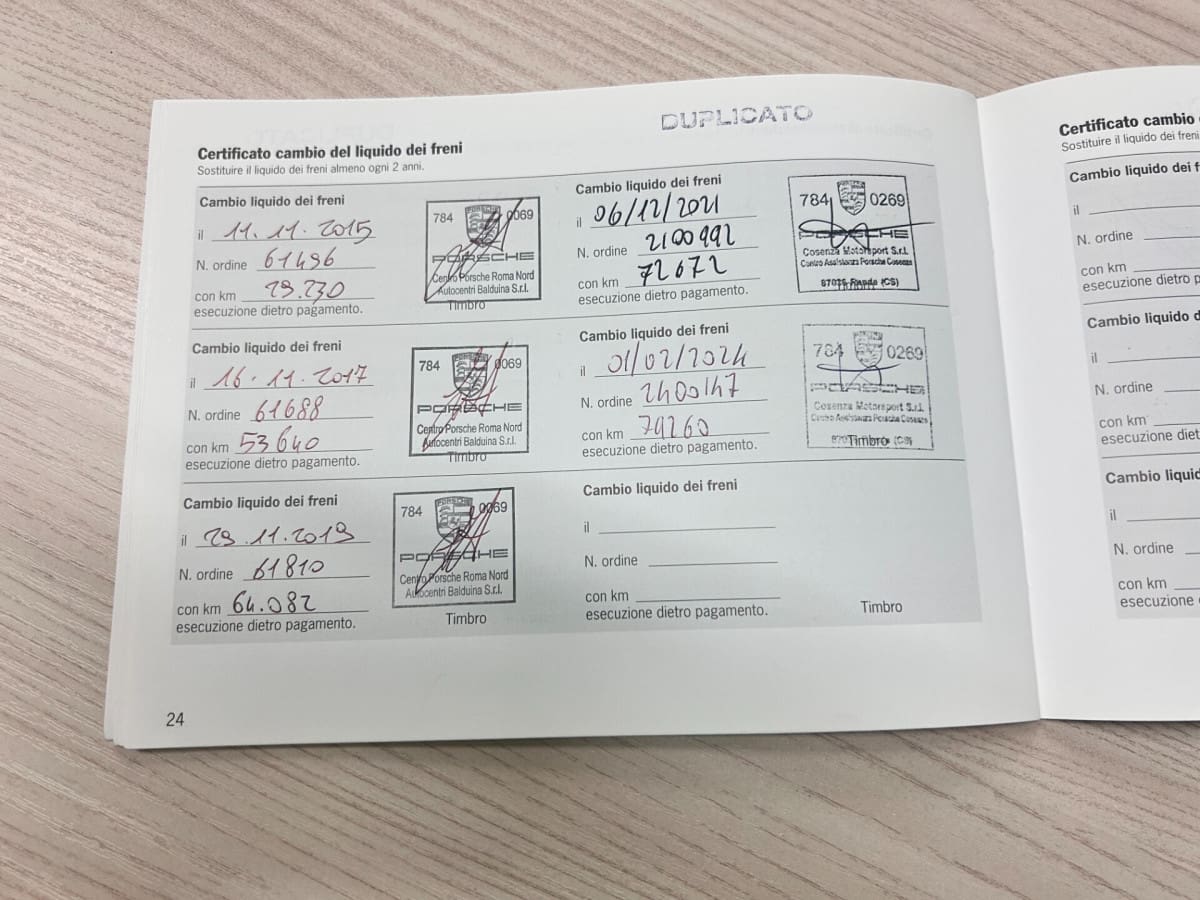 DUPLICATO
Certificato cambio del liquido dei freni
Sostituire il liquido dei freni almeno ogni 2 anni.
Cambio liquido dei freni
il 11.11.2015
N. ordine 61496
con km 29.230
esecuzione dietro pagamento.
784 0069
PORSCHE
Centro Porsche Roma Nord
Autocentri Balduina S.r.l.
Timbro
Cambio liquido dei freni
il 16.11.2017
N. ordine 61688
con km 53640
esecuzione dietro pagamento.
784 0069
PORSCHE
Centro Porsche Roma Nord
Autocentri Balduina S.r.l.
Timbro
Cambio liquido dei freni
il 29.11.2019
N. ordine 61810
con km 64.082
esecuzione dietro pagamento.
784 0069
PORSCHE
Centro Porsche Roma Nord
Autocentri Balduina S.r.l.
Timbro
Cambio liquido dei freni
il 06/12/2021
N. ordine 2100992
con km 72672
esecuzione dietro pagamento.
784 0269
PORSCHE
Cosenza Motorsport S.r.l.
Centro Assistenza Porsche Cosenza
87036 Rende (CS)
Cambio liquido dei freni
il 01/02/2024
N. ordine 2400147
con km 79260
esecuzione dietro pagamento.
784 0269
PORSCHE
Cosenza Motorsport S.r.l.
Centro Assistenza Porsche Cosenza
Timbro (CS)
Cambio liquido dei freni
il
N. ordine
con km
esecuzione dietro pagamento.
Timbro
24
Certificato cambio
Sostituire il liquido dei freni
Cambio liquido dei
il
N. ordine
con km
esecuzione dietro
Cambio liquido
il
N. ordine
con km
esecuzione dietro
Cambio
il
N. ordine
con km
esecuzione